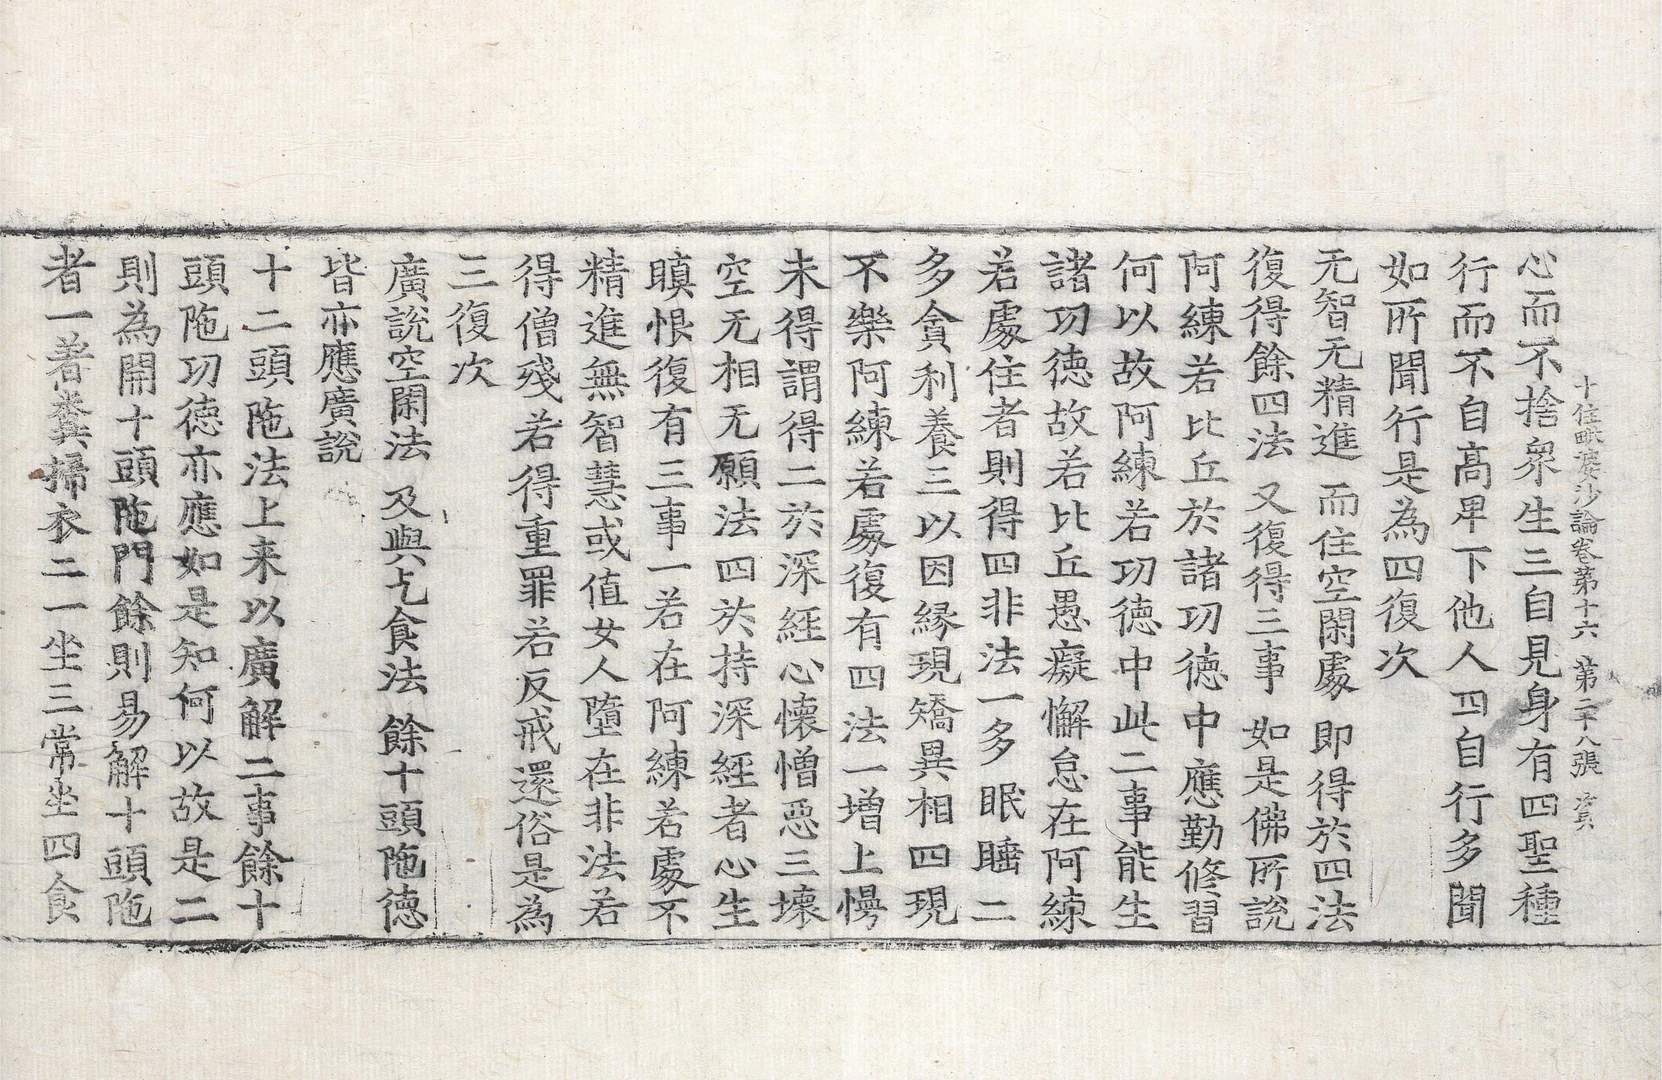 十住毗婆沙論卷第十六 第二十八張 賓
心而不捨衆生三自見身有四聖種
行而不自高卑下他人四自行多聞
如所聞行是為四復次
无智无精進 而住空閑處 即得於四法
復得餘四法 又復得三事 如是佛所說
阿練若比丘於諸功德中應勤修習
何以故阿練若功德中此二事能生
諸功德故若比丘愚癡懈怠在阿練
若處住者則得四非法一多眠睡二
多貪利養三以因緣現矯異相四現
不樂阿練若處復有四法一增上慢
未得謂得二於深經心懷憎惡三壞
空无相无願法四於持深經者心生
瞋恨復有三事一若在阿練若處不
精進無智慧或值女人墮在非法若
得僧殘若得重罪若反戒還俗是為
三復次
廣說空閑法 及與乞食法 餘十頭陁德
皆亦應廣說
十二頭陁法上来以廣解二事餘十
頭陁功德亦應如是知何以故是二
則為開十頭陁門餘則易解十頭陁
者一著糞掃衣二一坐三常坐四食